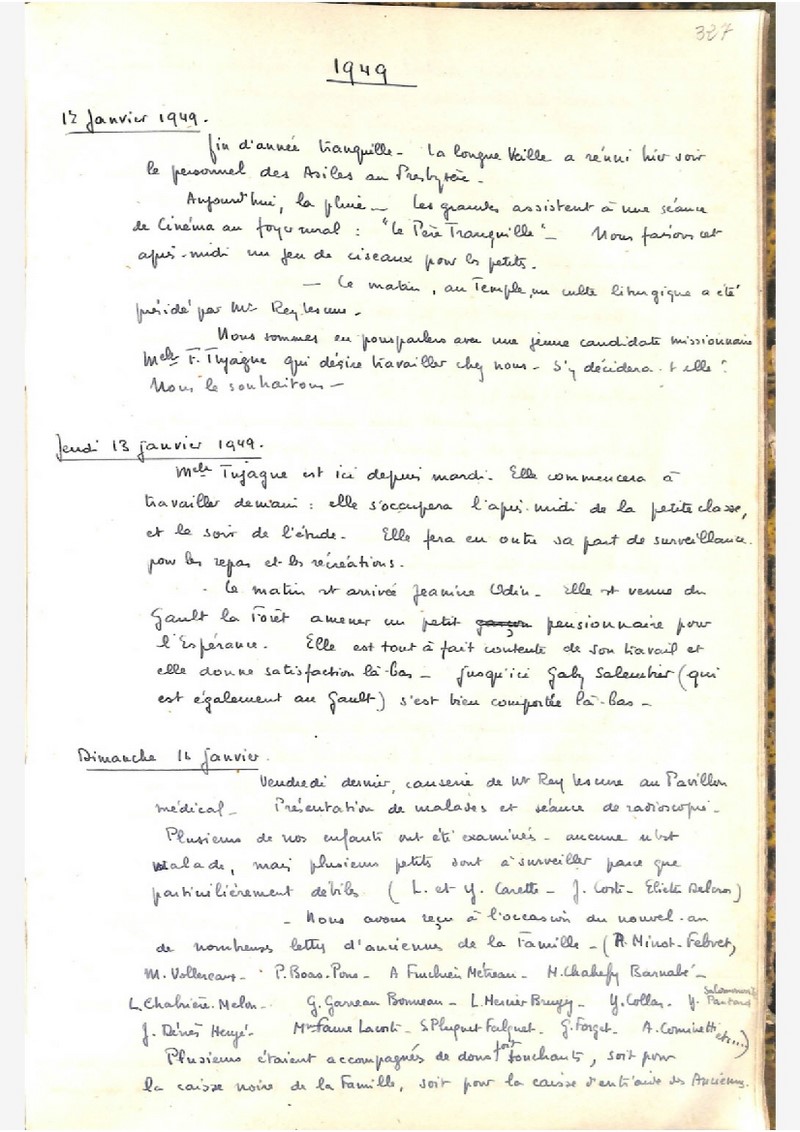 327
1949
1er Janvier 1949.
Fin d'année tranquille - La longue Veille a réuni hier soir
le personnel des Asiles au Presbytère -
Aujourd'hui, la pluie - Les grandes assistent à une séance
de Cinéma au foyer rural : "Le Père Tranquille" - Nous faisons cet
après-midi un jeu de ciseaux pour les petits.
- Ce matin, au Temple, un culte liturgique a été
présidé par Mr Rey Lescure -
Nous sommes en pourparlers avec une jeune candidate missionnaire
Melle F. Tujague qui désire travailler chez nous - S'y décidera-t-elle ?
Nous le souhaitons -
Jeudi 13 janvier 1949.
Melle Tujague est ici depuis mardi. Elle commencera à
travailler demain : elle s'occupera l'après-midi de la petite classe,
et le soir de l'étude - Elle fera en outre sa part de surveillance
pour les repas et les récréations.
- Ce matin est arrivée Jeanine Odin - Elle est venue du
Gault la Forêt amener un petit garçon pensionnaire pour
l'Espérance. Elle est tout à fait contente de son travail et
elle donne satisfaction là-bas - Jusqu'ici Gaby Salembier (qui
est également au Gault) s'est bien comportée là-bas -
Dimanche 16 Janvier.
Vendredi dernier, causerie de Mr Rey Lescure au Pavillon
médical - Présentation de malades et séance de radioscopie -
Plusieurs de nos enfants ont été examinés - aucune n'est
malade, mais plusieurs petits sont à surveiller parce que
particulièrement débiles (L. et Y. Carette - J. Coste - Eliette Delcros)
- Nous avons reçu à l'occasion du nouvel-an
de nombreuses lettres d'anciennes de la Famille - (R. Minot-Febvet,
M. - P. Boas-Pons - A - H. Barnabé -
L. Chabrière-Melon - G. Garreau Bonneau - L. Mercier - Y. Collas - Y.
J. Dénès - Me Faure Lacoste - S. - G. Forget - A. Cominetti etc...)
Plusieurs étaient accompagnés de dons fort touchants, soit pour
la caisse noire de la Famille, soit pour la caisse d'entr'aide des Anciennes.